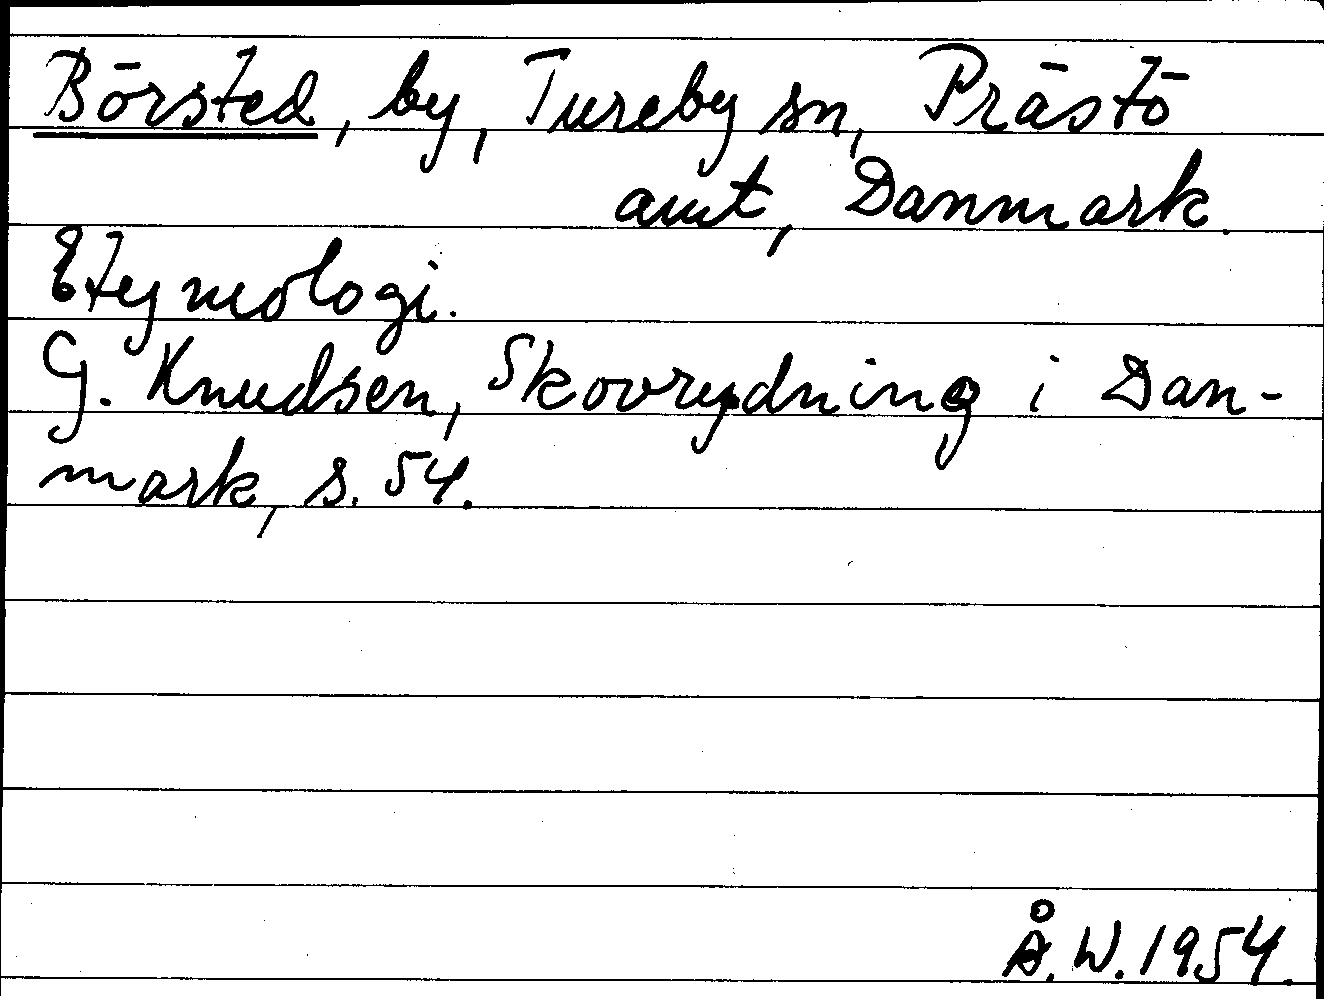 Börsted, by, Tureby sn, Prästö
amt, Danmark.
Etymologi.
G. Knudsen, Skovrydning i Dan-
mark, s. 54.
Å.W. 1954.